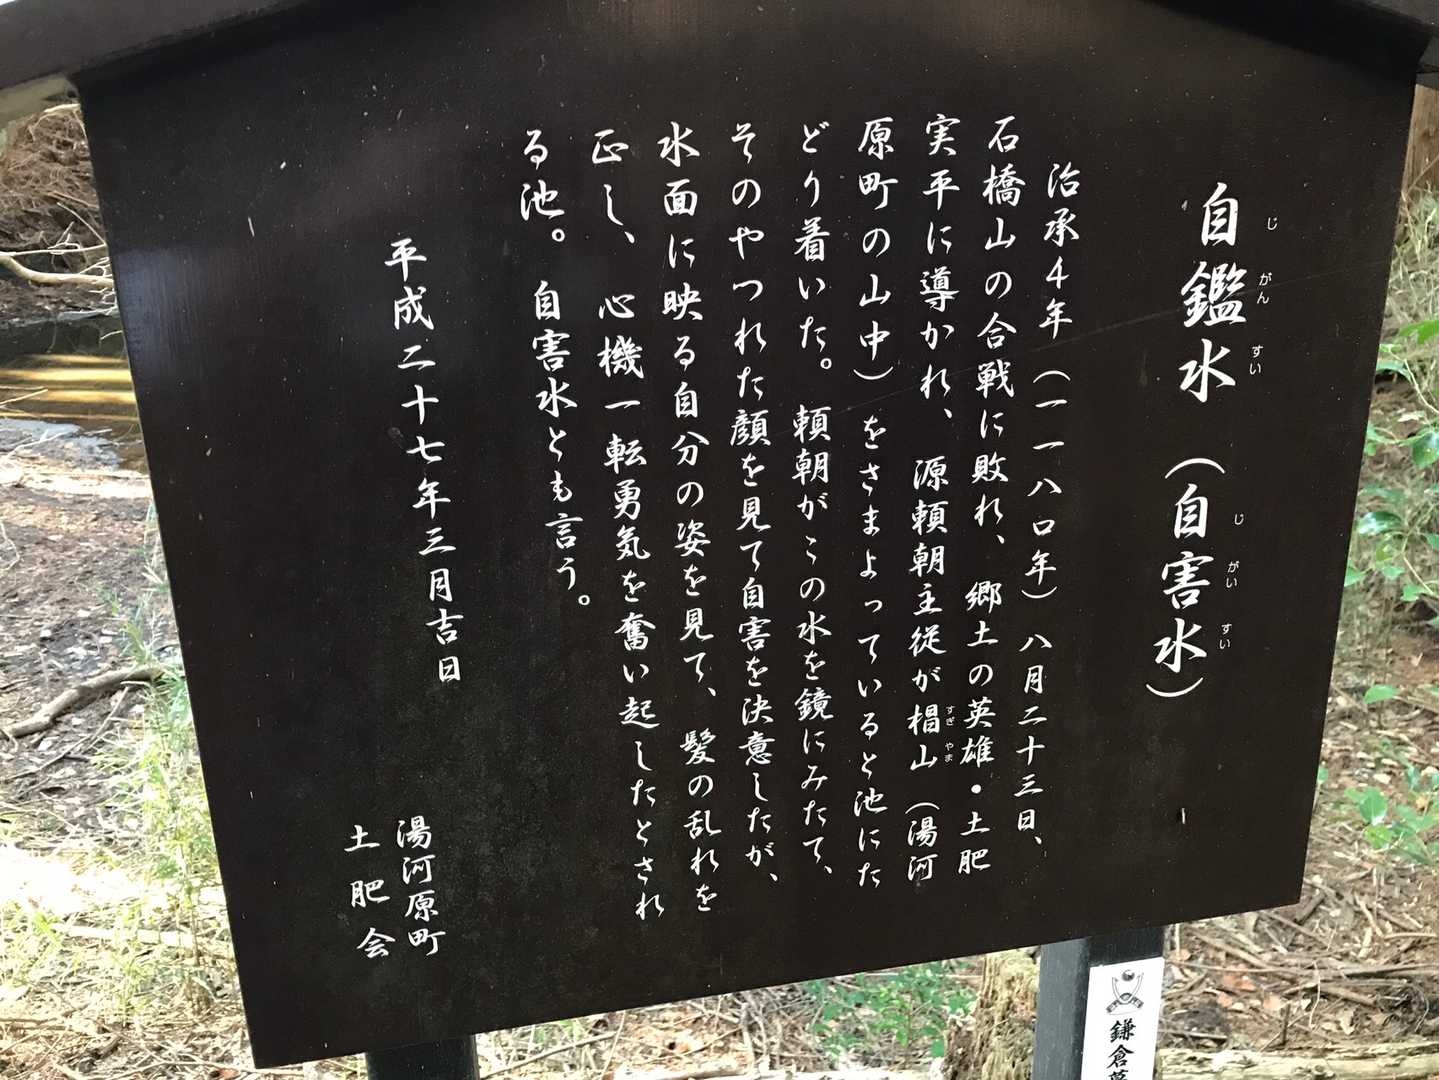 自鑑水（自害水）
じ がん すい じ がい すい
治承４年（一一八〇年）八月二十三日、
石橋山の合戦に敗れ、郷土の英雄・土肥
実平に導かれ、源頼朝主従が椙山（湯河
すぎ やま
原町の山中）をさまよっていると池にた
どり着いた。頼朝がこの水を鏡にみたて、
そのやつれた顔を見て自害を決意したが、
水面に映る自分の姿を見て、髪の乱れを
正し、心機一転勇気を奮い起したとされ
る池。自害水とも言う。
平成二十七年三月吉日
湯河原町
土肥会
鎌倉